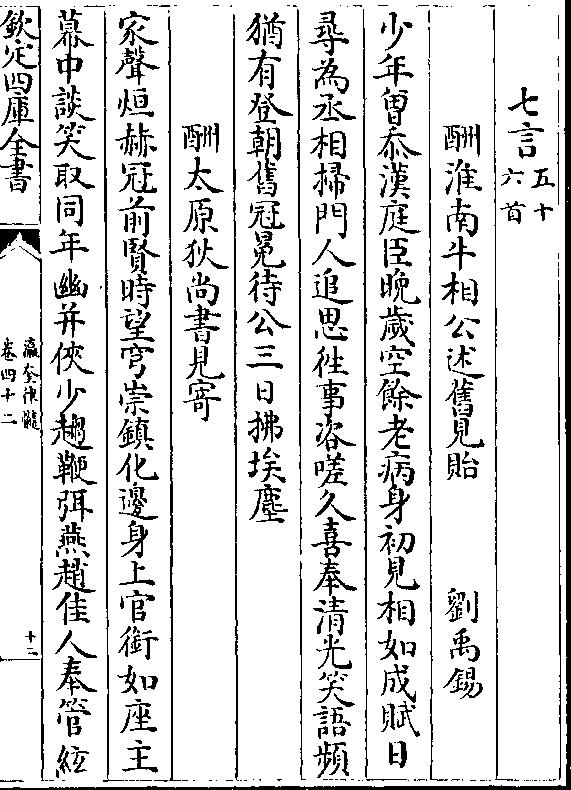 七言五十六首
酬淮南牛相公述舊見貽 劉禹錫
少年曽忝漢庭臣晚歲空餘老病身初見相如成賦日
尋為丞相掃門人追思徃事咨嗟久喜奉清光笑語頻
猶有登朝舊冠冕待公三日拂埃塵
酬太原狄尚書見寄
家聲烜赫冠前賢時望穹崇鎮化邊身上官銜如座主
幕中談笑取同年幽并俠少趨鞭弭燕趙佳人奉管絃
欽定四庫全書
瀛奎律髓
卷四十二
十二